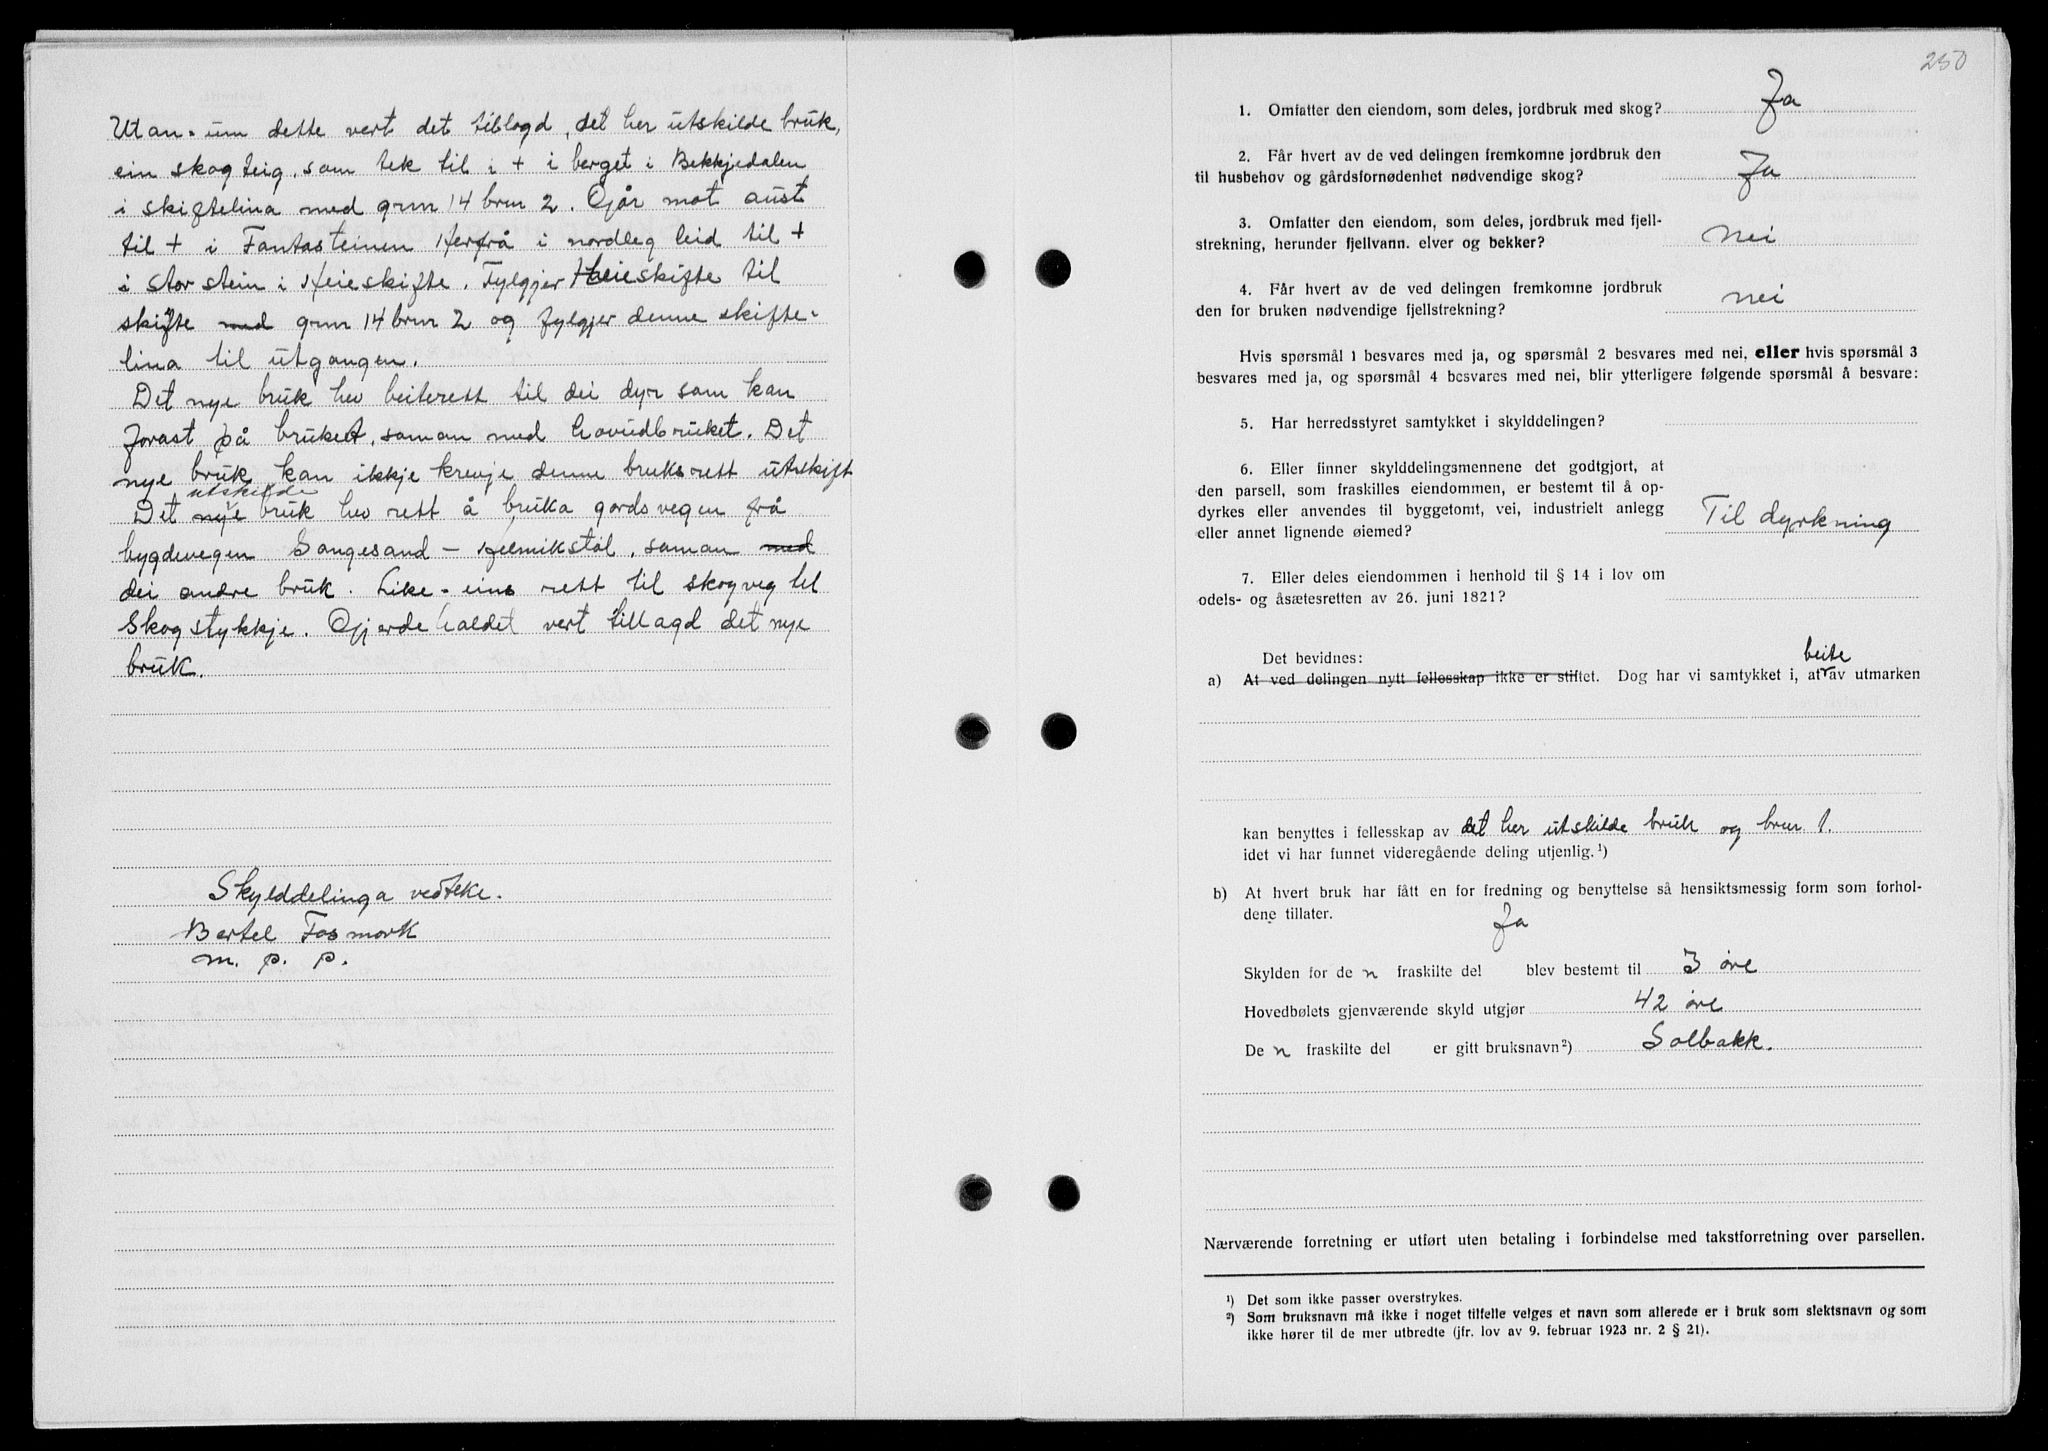 Utan-um dette vert det tillogd, det her utskilde bruk,
ein skogteig, som tek til i + i berget i Bekkjedalen
i skiftelina med gnm 14 brnr 2. Går mot aust
til + i Fantasteinen Herfrå i nordleg leid til +
i stor stein i Heieskifte. Fylgjer Heieskifte til
skifte med gnm 14 brnr 2 og fylgjer denne skifte-
lina til utgangen.
Det nye bruk hev beiterett til dei dyr som kan
forast på bruket, saman med hovudbruket. Det
nye bruk kan ikkje krevje denne bruksrett utskift
utskilde
Det nye bruk hev rett å bruka gardsvegen frå
bygdevegen Songesand – Helmikstøl, saman med
dei andre bruk. Like-eins rett til skogveg til
Skogstykkje. Gjerdehaldet vert tillagd det nye
bruk.
Skylddelinga vedteke.
Bertel Fosmork
m. p. p.
250
1. Omfatter den eiendom, som deles, jordbruk med skog? Ja
2. Får hvert av de ved delingen fremkomne jordbruk den
til husbehov og gårdsfornødenhet nødvendige skog? Ja
3. Omfatter den eiendom, som deles, jordbruk med fjell-
strekning, herunder fjellvann. elver og bekker? nei
4. Får hvert av de ved delingen fremkomne jordbruk
den for bruken nødvendige fjellstrekning? nei
Hvis spørsmål 1 besvares med ja, og spørsmål 2 besvares med nei, eller hvis spørsmål 3
besvares med ja, og spørsmål 4 besvares med nei, blir ytterligere følgende spørsmål å besvare:
5. Har herredsstyret samtykket i skylddelingen?
6. Eller finner skylddelingsmennene det godtgjort, at
den parsell, som fraskilles eiendommen, er bestemt til å op-
dyrkes eller anvendes til byggetomt, vei, industrielt anlegg
eller annet lignende øiemed? Til dyrkning
7. Eller deles eiendommen i henhold til § 14 i lov om
odels- og åsætesretten av 26. juni 1821?
Det bevidnes:
beite
a) At ved delingen nytt fellesskap ikke er stiftet. Dog har vi samtykket i, at av utmarken
kan benyttes i fellesskap av det her utskilde bruk og brnr 1.
idet vi har funnet videregående deling utjenlig.¹)
b) At hvert bruk har fått en for fredning og benyttelse så hensiktsmessig form som forhol-
dene tillater.
Ja
Skylden for de n fraskilte del blev bestemt til 3 øre
Hovedbølets gjenværende skyld utgjør 42 øre
De n fraskilte del er gitt bruksnavn²) Solbakk.
Nærværende forretning er utført uten betaling i forbindelse med takstforretning over parsellen.
¹) Det som ikke passer overstrykes.
²) Som bruksnavn må ikke i noget tilfelle velges et navn som allerede er i bruk som slektsnavn og som
ikke hører til de mer utbredte (jfr. lov av 9. februar 1923 nr. 2 § 21).